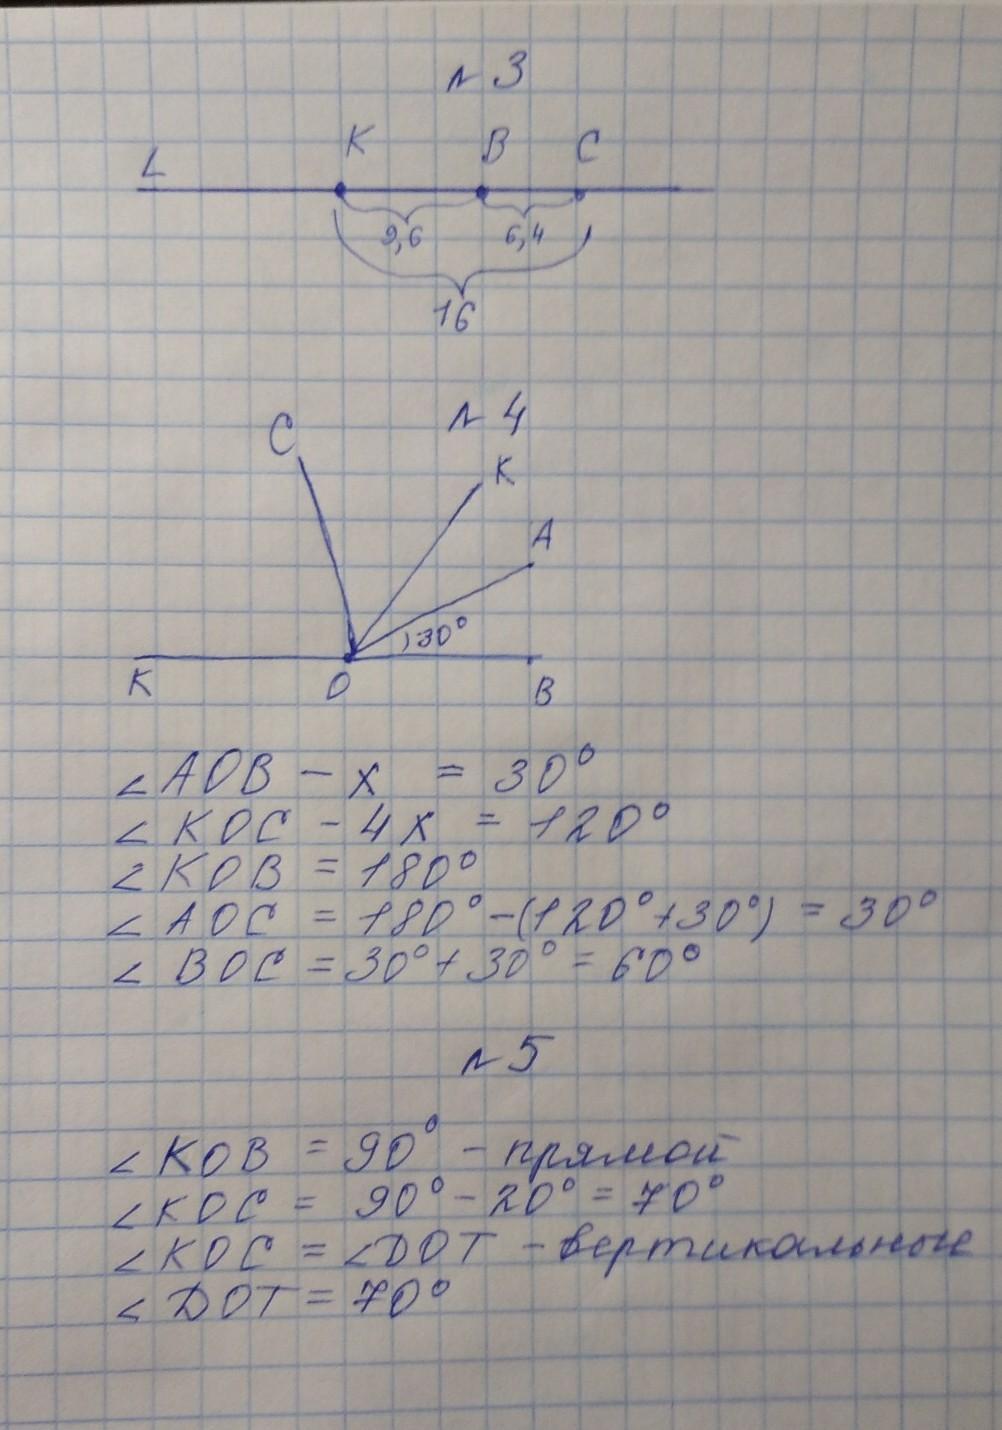 N 3
L K B C
9,6 6,4
16
N 4
C
K
A
30°
K O B
∠ AOB - x = 30°
∠ KOC - 4x = 120°
∠ KOB = 180°
∠ AOC = 180° - (120° + 30°) = 30°
∠ BOC = 30° + 30° = 60°
N 5
∠ KOB = 90° - прямой
∠ KOC = 90° - 20° = 70°
∠ KOC = ∠DOT - вертикальные
∠ DOT = 70°